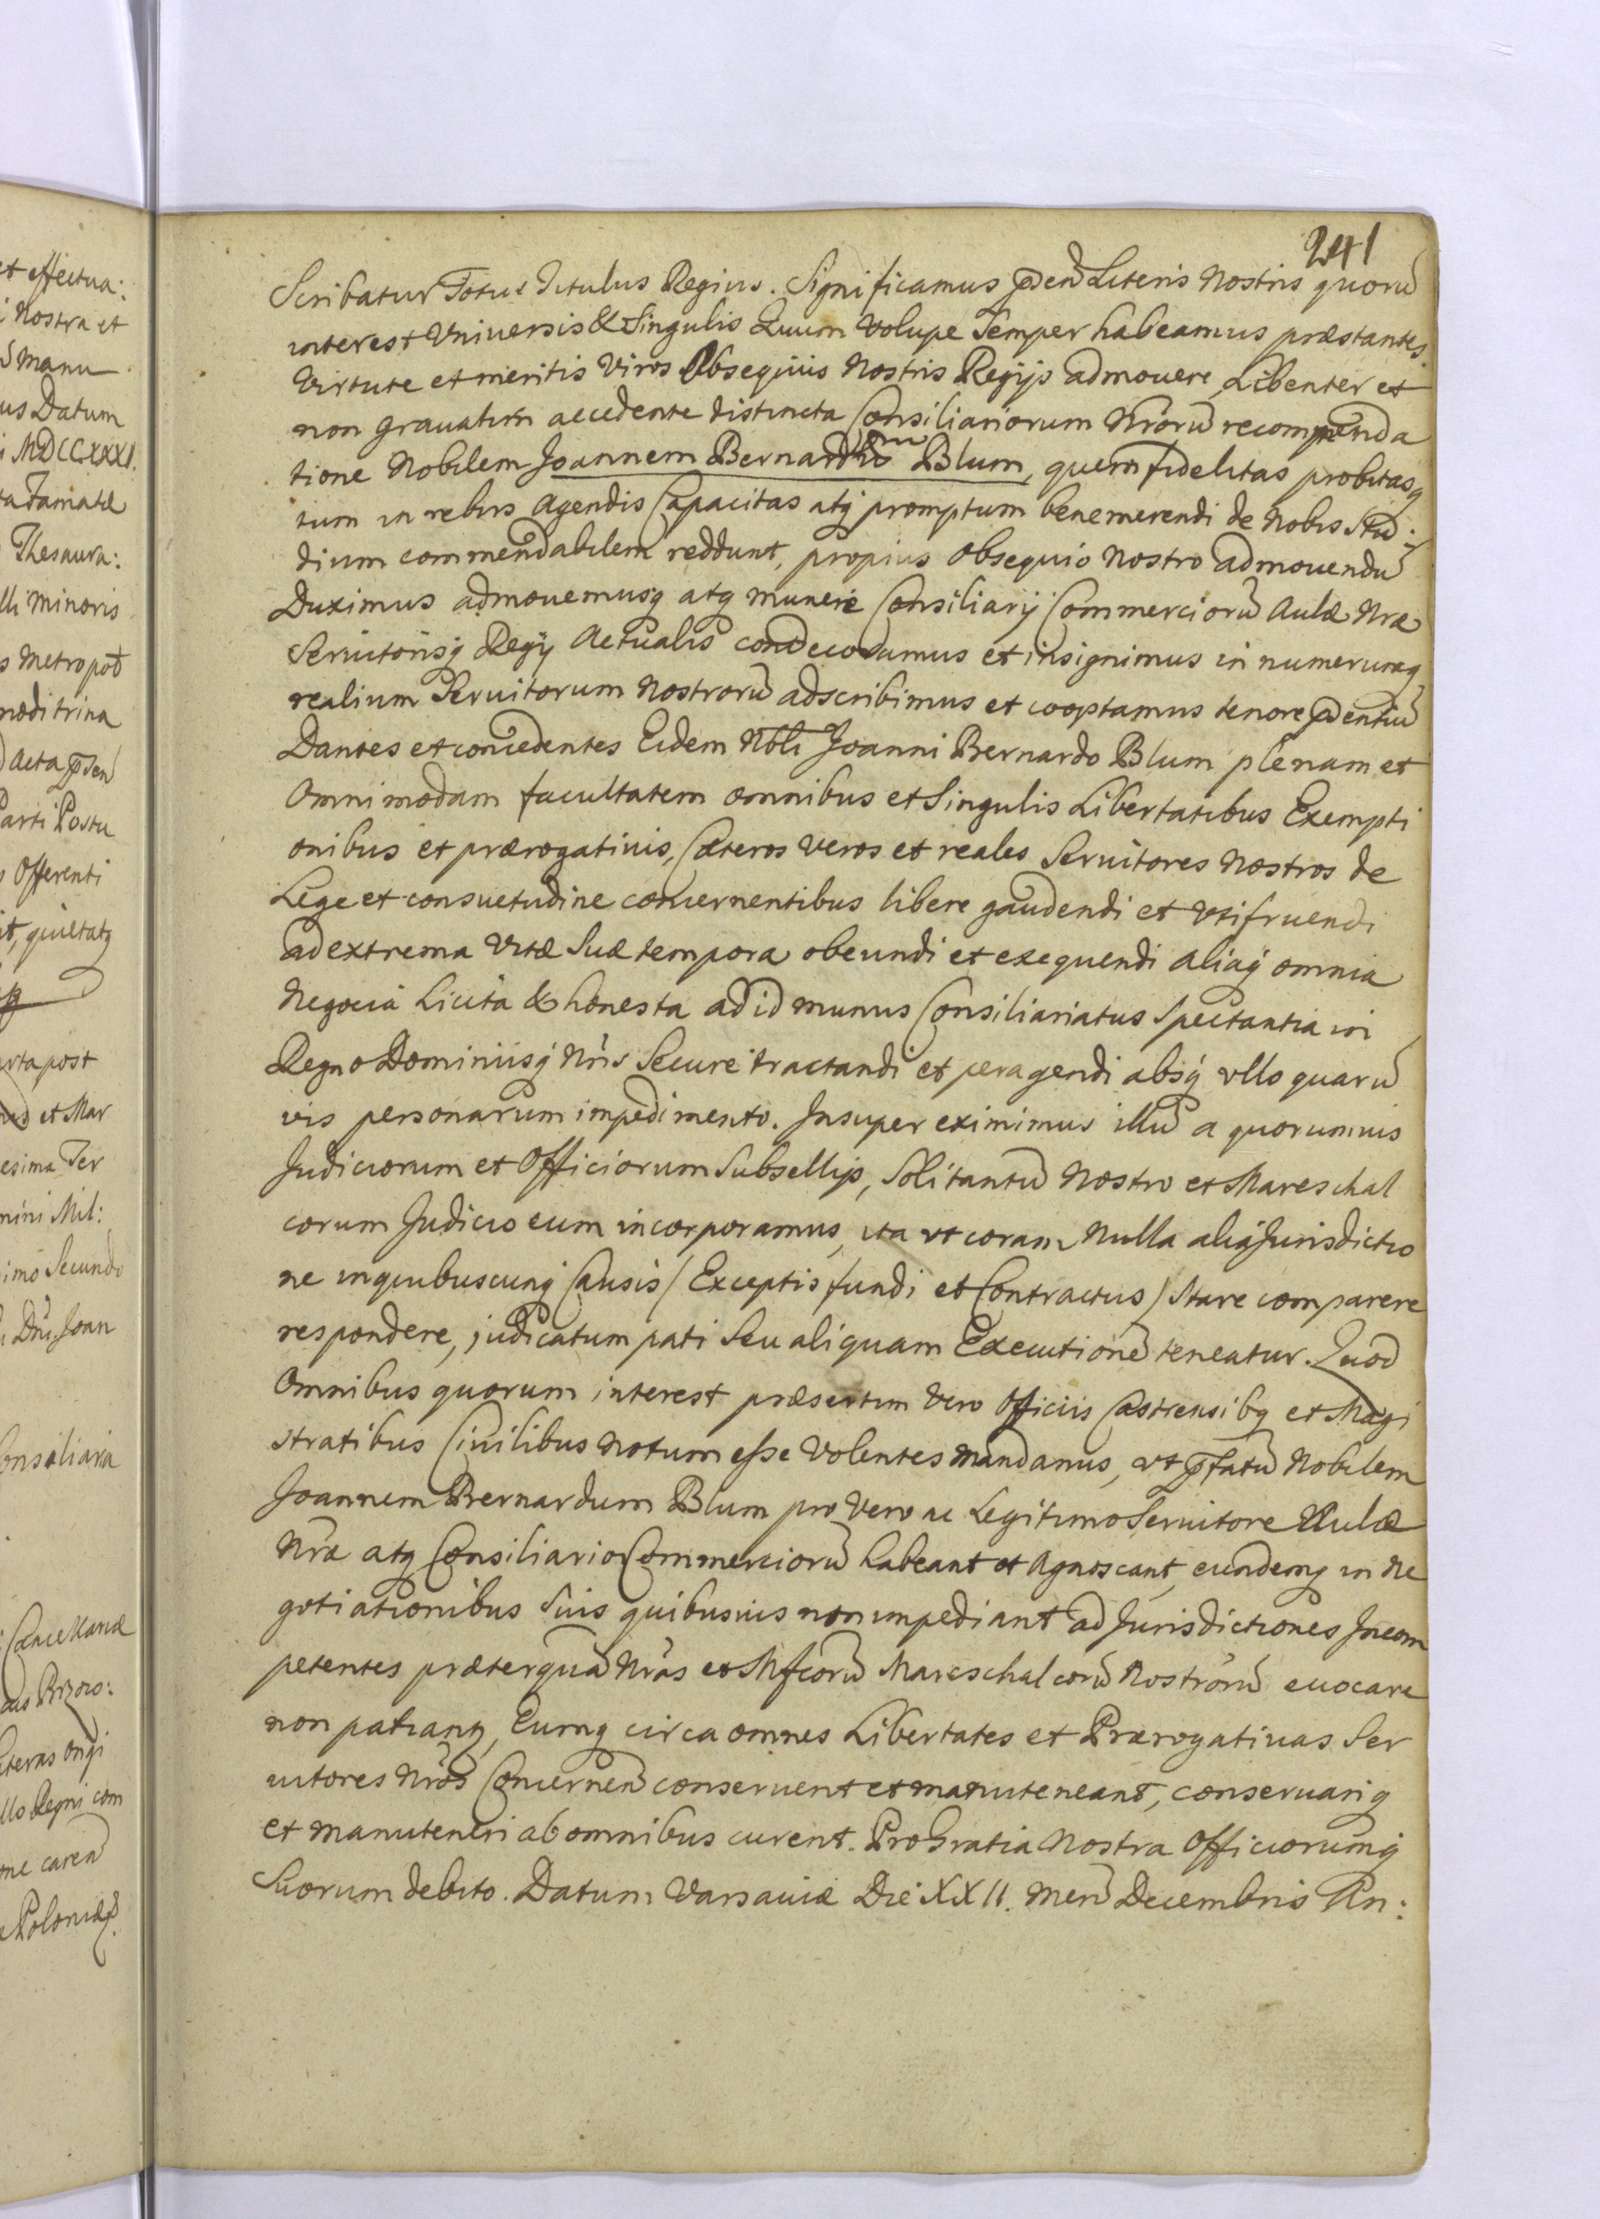 et effectua:
i Nostra et
manu
us Datum
i MDCCXXXI.
Thesaura:
lli Minoris
s Metropol
Acta psen
Parti Postu
Offerenti
it, quietatq
rta post
et Mar
esima Ter
mini Mil:
imo Secundo
Dni Joan
Consiliaria
Cancellariæ
llo Regni com
ne caren
Poloniæ
241
Scribatur Totus Titulus Regius. Significamus psen Literis Nostris quorū
interest Vniversis & Singulis Quum Volupe Semper habeamus præstantes
Virtute et meritis Viros Obsequiis Nostris Regijs admouere, Libenter et
non grauatim accedente distincta Consiliariorum Nrorū recommenda
tione Nobilem Joannem Bernardum Blum, quem fidelitas probitasq
tum in rebus Agendis Capacitas atq promptum benemerendi de Nobis Stu:
dium commendabilem reddunt, propius Obsequio Nostro admouendū
Duximus admouemusq atq munere Consiliarij Commerciorū Aulæ Nræ
Seruitorisq Regij Actualis condecoramus et insignimus in numerumq
realium Seruitorum Nostrorū adscribimus et cooptamus tenore psentiū
Dantes et concedentes Eidem Nbli Joanni Bernardo Blum plenam et
Omnimodam facultatem omnibus et Singulis Libertatibus Exempti
onibus et prærogatiuis, Cæteros Veros et reales Seruitores Nostros de
Lege et consuetudine concernentibus libere gaudendi et Vtifruendi
ad extrema Vitæ Suæ tempora obeundi et exequendi aliaq omnia
Negocia Licita & honesta ad id munus Consiliariatus Spectantia in
Regno Dominiisq Nris Secure tractandi et peragendi absq vllo quarū
vis personarum impedimento. Insuper eximimus illū a quorumuis
Judiciorum et Officiorum Subsellijs, Soli tantū Nostro et Mareschal
corum Judicio eum incorporamus, ita vt coram Nulla aliq Jurisdictio
ne inquibuscunq Causis / Exceptis fundi et Contractus / Stare comparere
respondere, judicatum pati Seu aliquam Executionē teneatur. Quod
Omnibus quorum interest præsertim Vero Officiis Castrensibq et Magi
stratibus Ciuilibus Notum esse Volentes mandamus, vt pfatū Nobilem
Joannem Bernardum Blum pro Vero ac Legitimo Seruitore Aulæ
Nræ atq Consiliario Commerciorū habeant et Agnoscant, eundemq in Ne
gotiationibus Suis quibusuis non impediant ad Jurisdictiones Incom
petentes præterquā Nras et Mfcorū Mareschalcorū Nostrorū euocare
non patianq, Eumq circa omnes Libertates et Prærogatiuas Ser
uitores Nros Concernen conseruent et manuteneant, conseruariq
et manuteneri ab omnibus curent. Pro Gratia Nostra Officiorumq
Suorum debito. Datum Varsauiæ Die XXII. Men Decembris An: